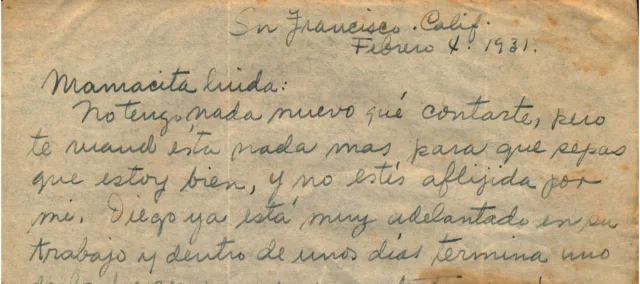 Sn Francisco. Calif.
Febrero 4. 1931.
Mamacita linda:
No tengo nada nuevo qué contarte, pero
te mando ésta nada mas para que sepas
que estoy bien, y no estés aflijida por
mi. Diego ya está muy adelantado en su
trabajo y dentro de unos días termina uno